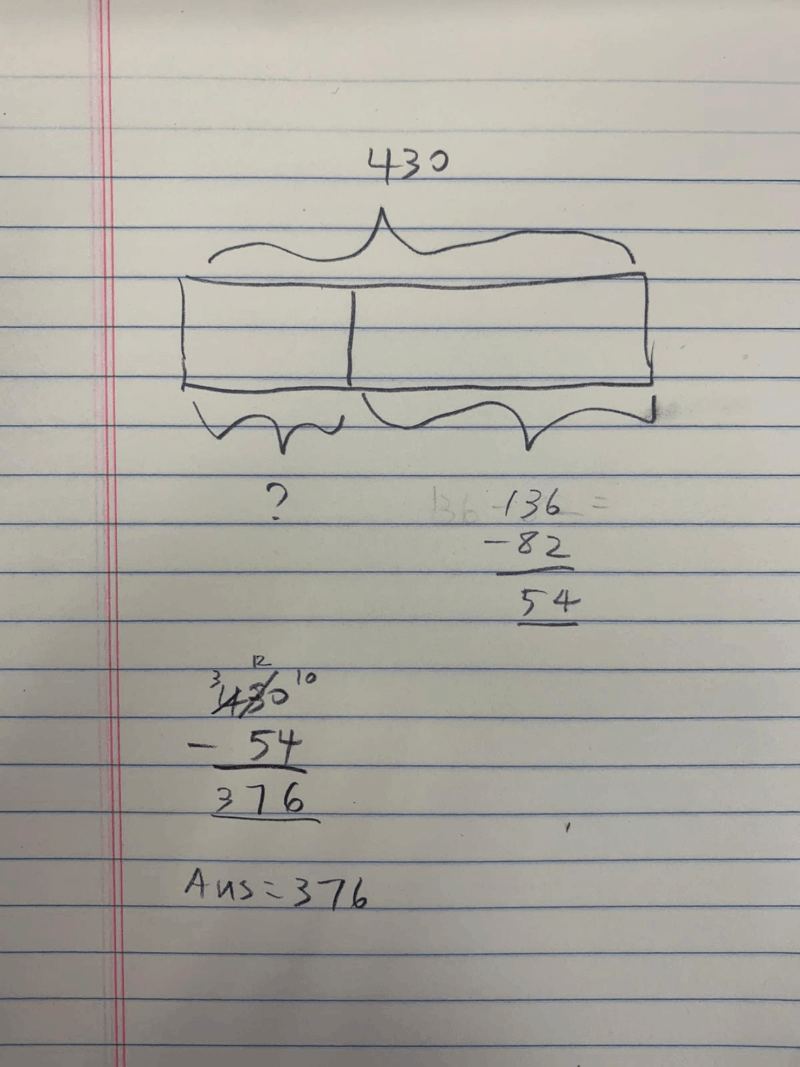 430
?
136 =
-82
54
3 12 10
430
- 54
376
Ans = 376